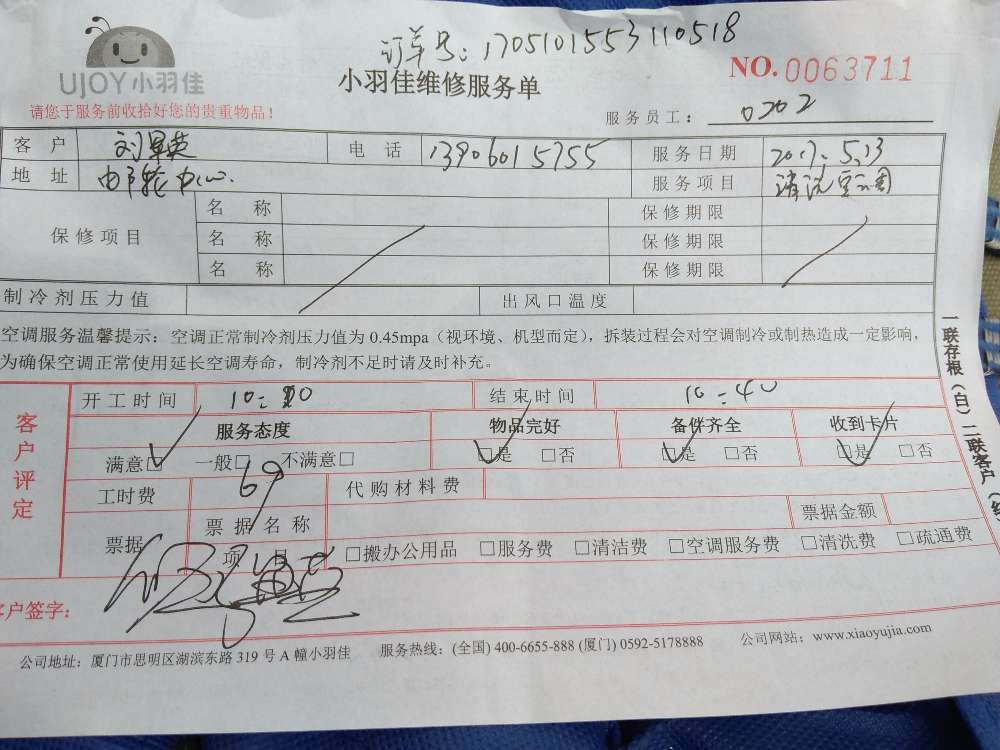 订单号：1705101553110518
UJOY小羽佳
小羽佳维修服务单
NO.0063711
请您于服务前收拾好您的贵重物品！
服务员工：0202
客户 电话 13906015755 服务日期 2017.5.13
地址 邮轮中心. 服务项目 清洗空调
保修项目 名称 保修期限
名称 保修期限
名称 保修期限
制冷剂压力值 出风口温度
空调服务温馨提示：空调正常制冷剂压力值为 0.45mpa（视环境、机型而定），拆装过程会对空调制冷或制热造成一定影响，
为确保空调正常使用延长空调寿命，制冷剂不足时请及时补充。
客户评定
开工时间 结束时间 10:40
服务态度 物品完好 备件齐全 收到卡片
满意□ 一般□ 不满意□ □是 □否 □是 □否 □是 □否
工时费 69 代购材料费
票据 票据名称 票据金额
项目 □搬办公用品 □服务费 □清洁费 □空调服务费 □清洗费 □疏通费
客户签字：
公司地址：厦门市思明区湖滨东路 319 号 A 幢小羽佳 服务热线：(全国) 400-6655-888 (厦门) 0592-5178888 公司网站：www.xiaoyujia.com
一联存根（白）二联客户（